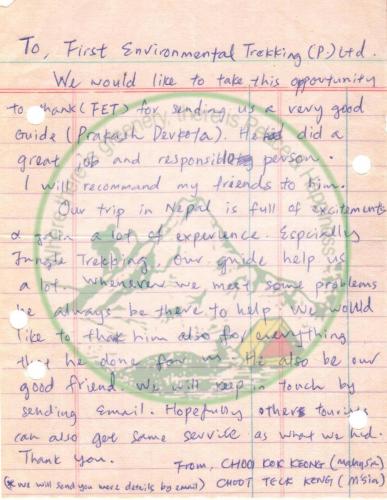 To, First Environmental Trekking (P.) Ltd.
We would like to take this opportunity
to thank (FET) for sending us a very good
Guide (Prakash Devkota). He did a
great job and responsible person.
I will recommand my friends to him.
Our trip in Nepal is full of excitements
& gain a lot of experience. Especially
Jungle Trekking. Our guide help us
a lot. Whenever we meet some problems
he always be there to help. We would
like to thank him also for everything
that he done for us. He also be our
good friend. We will keep in touch by
sending Email. Hopefully others tourists
can also get same service as what we had.
Thank you.
From, CHOO KOK KEONG (Malaysia)
(* we will send you more details by email) CHOOT TECK KENG (M'sia)